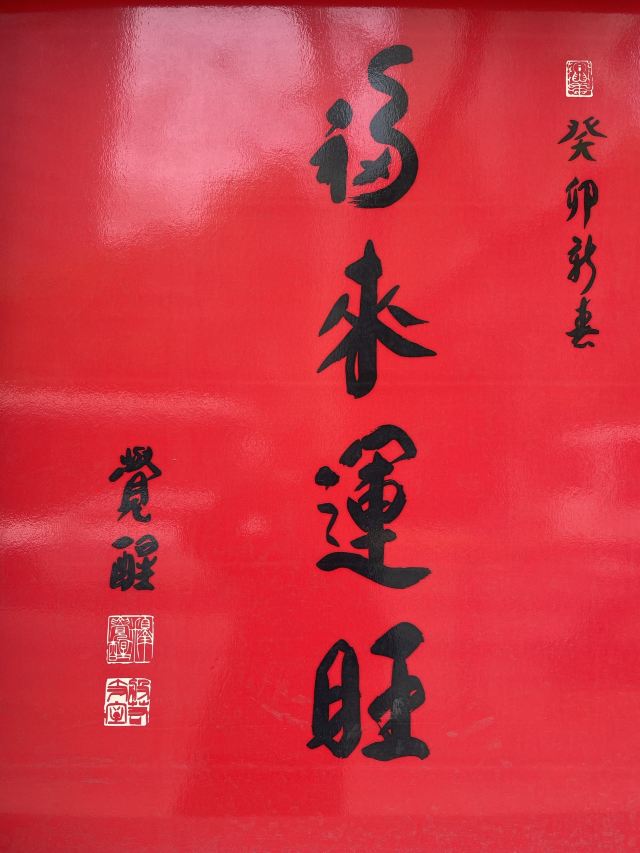 癸卯新春
福來運旺
覺醒